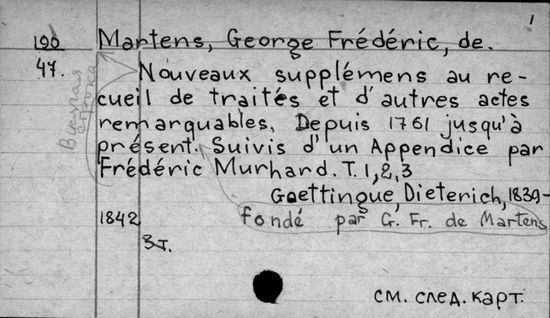 1
190
47.
Martens, George Frédéric, de.
Nouveaux supplémens au re-
cueil de traités et d'autres actes
remarquables. Depuis 1761 jusqu'à
présent. Suivis d'un Appendice par
Frédéric Murhard. T. 1, 2, 3
Goettingue, Dieterich, 1839-
1842
fondé par G. Fr. de Martens
3 т.
см. след. карт.